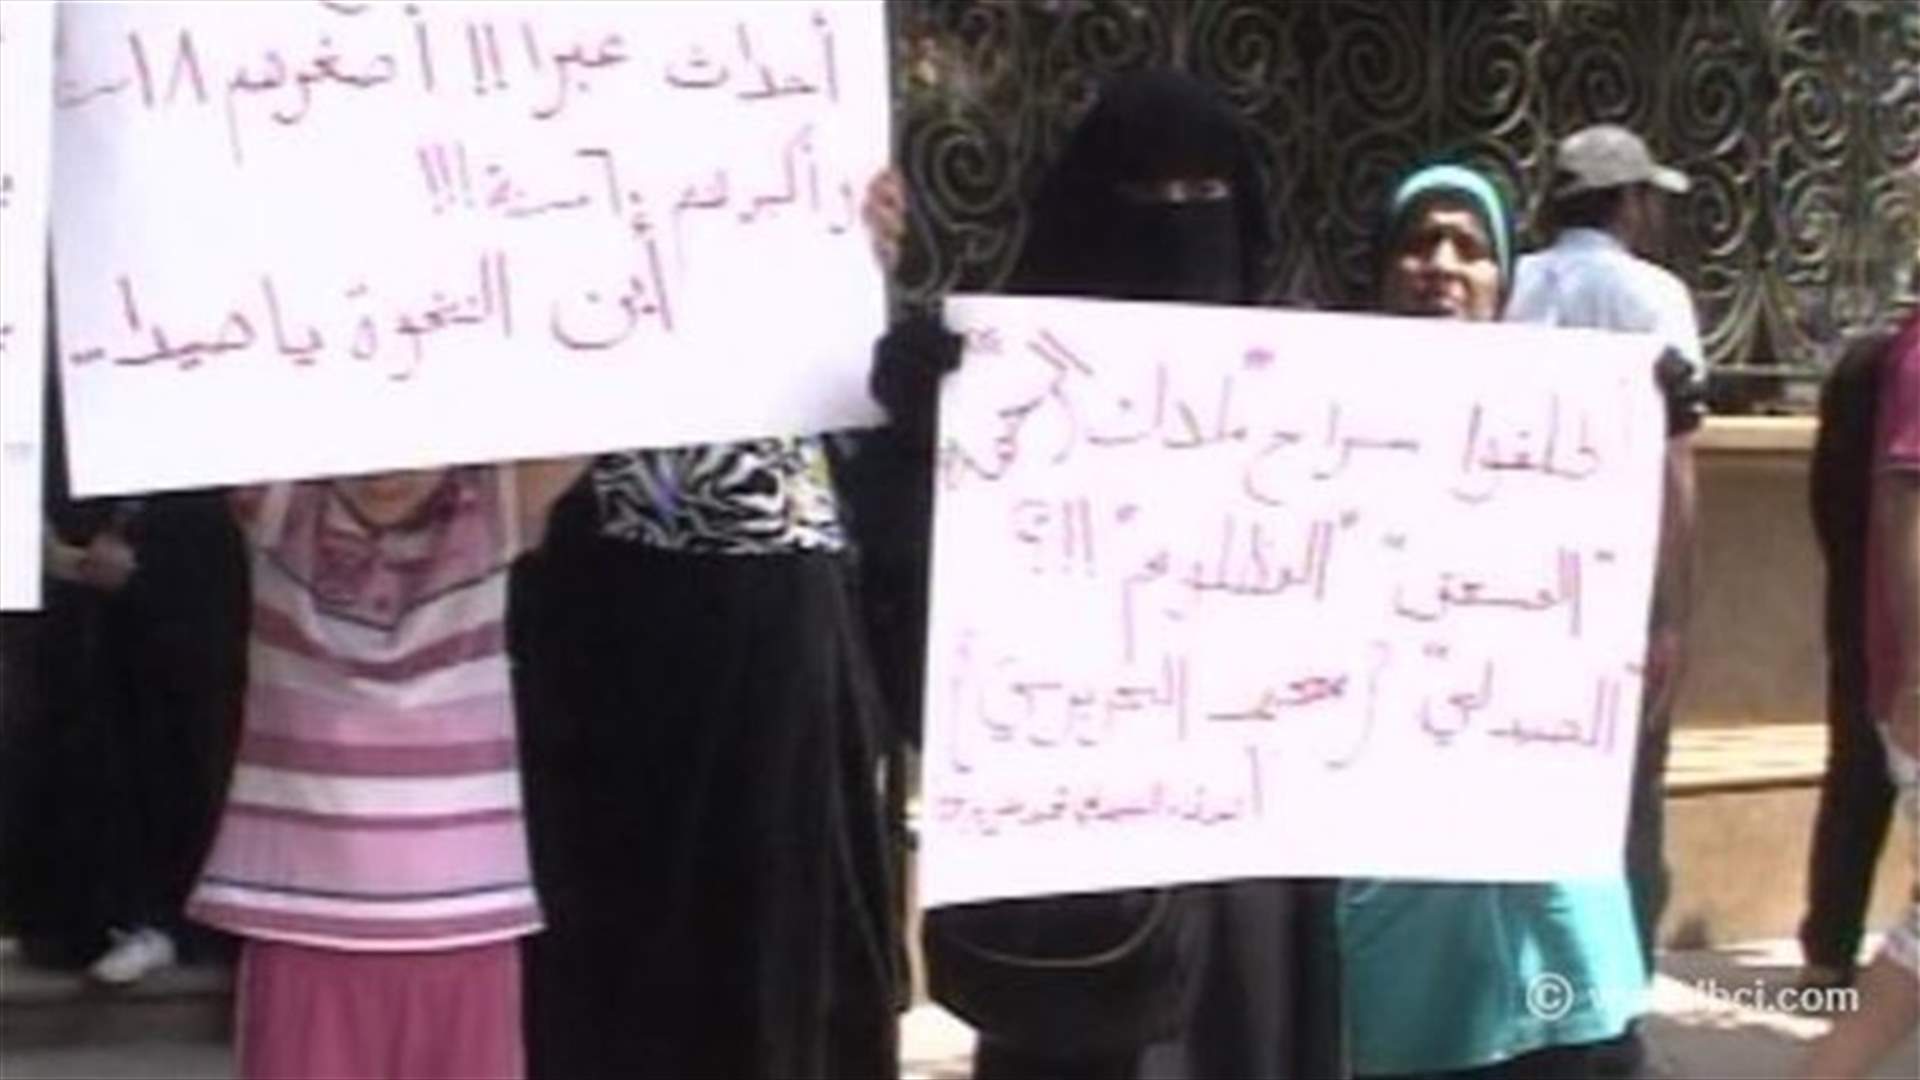 أحداث عبرا!! أصغرهم ١٨
وأكبرهم ٦٠ سنة!!!
أين النخوة يا صيدا..
أطلقوا سراح ملاك الرحمة
"المسعف" "المظلوم" !!!؟
الصيدلي [محمد الحريري]
© www.lbci.com